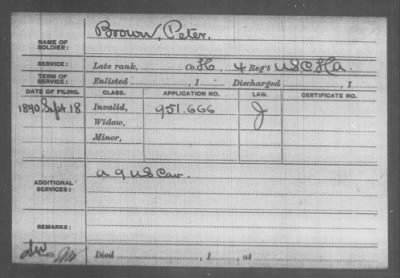 NAME OF SOLDIER: Brown, Peter.
SERVICE: Late rank, Co. H, 4 Reg't U S C H A.
TERM OF SERVICE: Enlisted , 1 Discharged , 1
DATE OF FILING. CLASS. APPLICATION NO. LAW. CERTIFICATE NO.
1890, Sept 18 Invalid, 951.666 J
Widow,
Minor,
ADDITIONAL SERVICES: A 9 U S Cav.
REMARKS:
Died , 1 , at